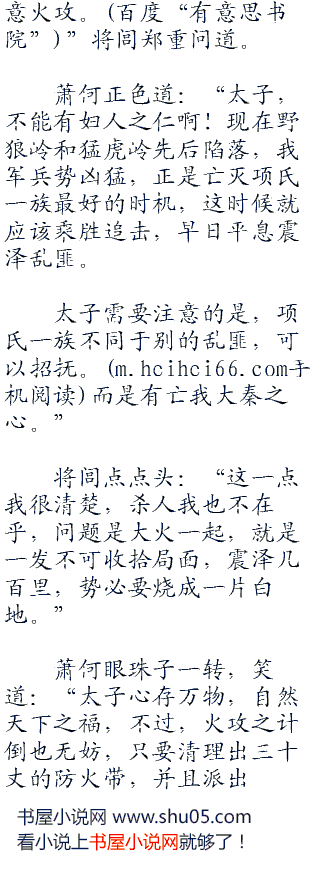 意火攻。(百度“有意思书
院”)”将闾郑重问道。
萧何正色道：“太子，
不能有妇人之仁啊！现在野
狼岭和猛虎岭先后陷落，我
军兵势凶猛，正是亡灭项氏
一族最好的时机，这时候就
应该乘胜追击，早日平息震
泽乱匪。
太子需要注意的是，项
氏一族不同于别的乱匪，可
以招抚。(m.hcihci66.com手
机阅读)而是有亡我大秦之
心。”
将闾点点头：“这一点
我很清楚，杀人我也不在
乎，问题是大火一起，就是
一发不可收拾局面，震泽几
百里，势必要烧成一片白
地。”
萧何眼珠子一转，笑
道：“太子心存万物，自然
天下之福，不过，火攻之计
倒也无妨，只要清理出三十
丈的防火带，并且派出
书屋小说网 www.shu05.com
看小说上书屋小说网就够了！